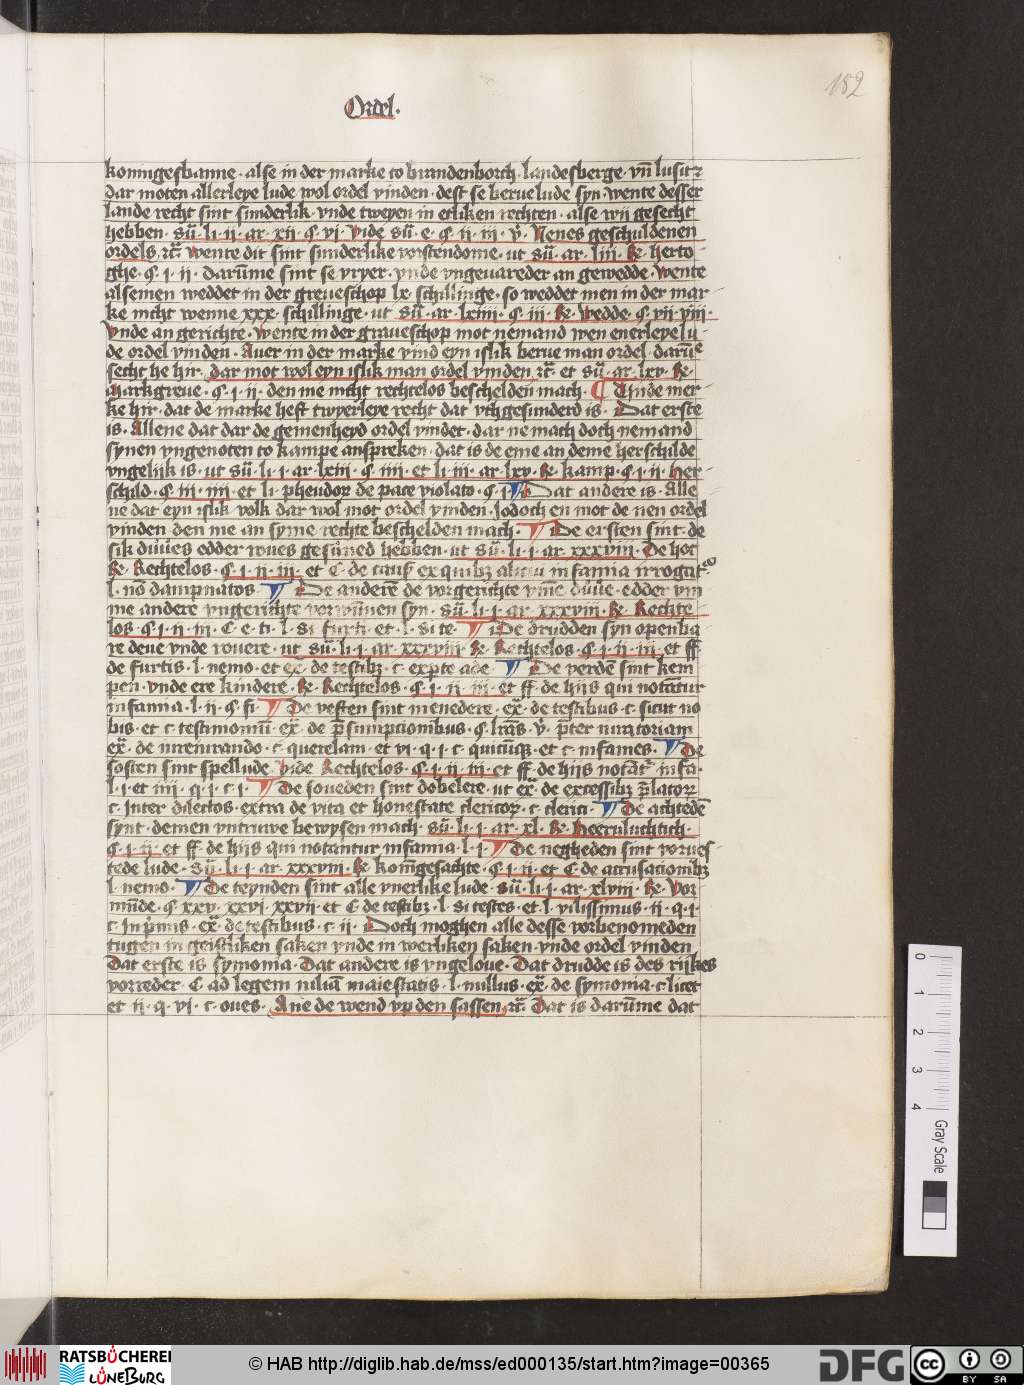 182
Ordel.
koninges banne · alse in der marke to brandenborch · landesberge · vn̄ lusitz
dar moten allerleye lude wol ordel vinden · dest se berue lude syn · wente desser
lande recht sint sunderlik · vnde tweyen in etliken rechten · alse wij gesecht
hebben · sū · li · ii · ar · xii · q · vi · vide sū · e · q · ii · iii · v · Nenes geschuldenen
ordels · wente dit sint sunderlike vorstendome · ut sū · ar · liii · R̄ · herto-
ghe · q · i · ii · darūme sint se vryer · vnde vngeuareder an gewedde · wente
alsemen weddet in der greueschop lx schillinge · so weddet men in der mar-
ke nicht wenne xxx · schillinge · ut sū · ar · lxiiii · q · iii · R̄ · wedde · q · vii · viii ·
vnde an gerichte · wente in der graueschop mot nemand wen enerleye lu-
de ordel vinden · Auer in der marke vind eyn islik berue man ordel · darūe
secht he hir · dar mot wol eyn islik man ordel vinden · et sū · ar · lxv · R̄ ·
Markgreue · q · i · ii · den me nicht rechtelos beschelden mach · Unde mer-
ke hir · dat de marke heft twyerleye recht dat vthgesunderd is · Dat erste
is · Allene dat dar de gemenheyd ordel vindet · dar ne mach doch nemand
synen vngenoten to kampe anspreken · dat is de eme an deme herschilde
vngelijk is · ut sū · li · i · ar · lxiii · q · iiii · et li · iii · ar · lxv · R̄ · kamp · q · i · ii · Her-
schild · q · iii · iiii · et li · pheudor de pace violato · q · i · Dat andere is · Alle
ne dat eyn islik volk dar wol mot ordel vinden · Jodoch en mot de nen ordel
vinden den me an syme rechte beschelden mach · De ersten sint · de
sik duues edder roues gesūned hebben · ut sū · li · i · ar · xxxviii · De hot
R̄ · Rechtelos · q · i · ii · iii · et C · de caus ex quibz infamia irrogat
l · nō dampnatos · De anderē de vorgerichte vm̄e duue · edder vm
me andere vngerichte vorwūnen syn · sū · li · i · ar · xxxviii · R̄ · Rechte
los · q · i · ii · iii · C · e · ti · l · si furti · et · l · si te · De drudden syn openba
re deue vnde rouere · ut sū · li · i · ar · xxxviii · R̄ · Rechtelos · q · i · ii · iii · et ff ·
de furtis · l · nemo · et ex̄ · de testibz · c · exp̄te ade · De verdē sint kem
pen · vnde ere kindere · R̄ · Rechtelos · q · i · ii · iii · et ff · de hijs qui notātur
infamia · l · ii · q · fi · De veften sint menedere · ex̄ · de testibus · c · sicut no
bis · et c · testimoniū · ex̄ · de p̄sumpcionibus · q · l · v · p̄ter iuratoriam
ex̄ · de iureiurando · c · querelam · et vi · q · i · c · quicūqz · et c · infames · De
sosten sint spellude · vide Rechtelos · q · i · ii · iii · et ff · de hijs notāt̄ infa ·
l · i · et iiii · q · i · c · i · De soueden sint dobelere · ut ex̄ · de excessibz p̄lator
c · Inter dilectos · extra de vita et honestate clericor · c · clerici · De achtedē
synt · demen vntruwe bewysen mach · sū · li · i · ar · xl · R̄ · Heervluchtich ·
q · i · ii · et ff · de hijs qui notantur infamia · l · i · De negheden sint vorues-
tede lude · sū · li · i · ar · xxxviii · R̄ · kom̄gesachte · q · i · ii · et C · de accusacionibz
l · nemo · De teynden sint alle vnerlike lude · sū · li · i · ar · xlviii · R̄ · Vor
mūde · q · xxv · xxvi · xxvii · et C · de testibz · l · si testes · et · l · vilissimus · ii · q · i ·
c · Inp̄mis · ex̄ · de testibus · c · ii · Doch moghen alle desse vorbenomeden
tugen in geistliken saken vnde in werliken saken · vnde ordel vinden
Dat erste is symonia · Dat andere is vngeloue · Dat drudde is des rijkes
vorreder · C · ad legem iuliā maiestatis · l · nullus · ex̄ · de symonia · c · licet
et ii · q · vi · c · oues · Ane de wend vp den sassen · Dat is darūme dat
0 1 2 3 4
Gray Scale
RATSBÜCHEREI LÜNEBURG
© HAB http://diglib.hab.de/mss/ed000135/start.htm?image=00365
DFG
cc BY SA